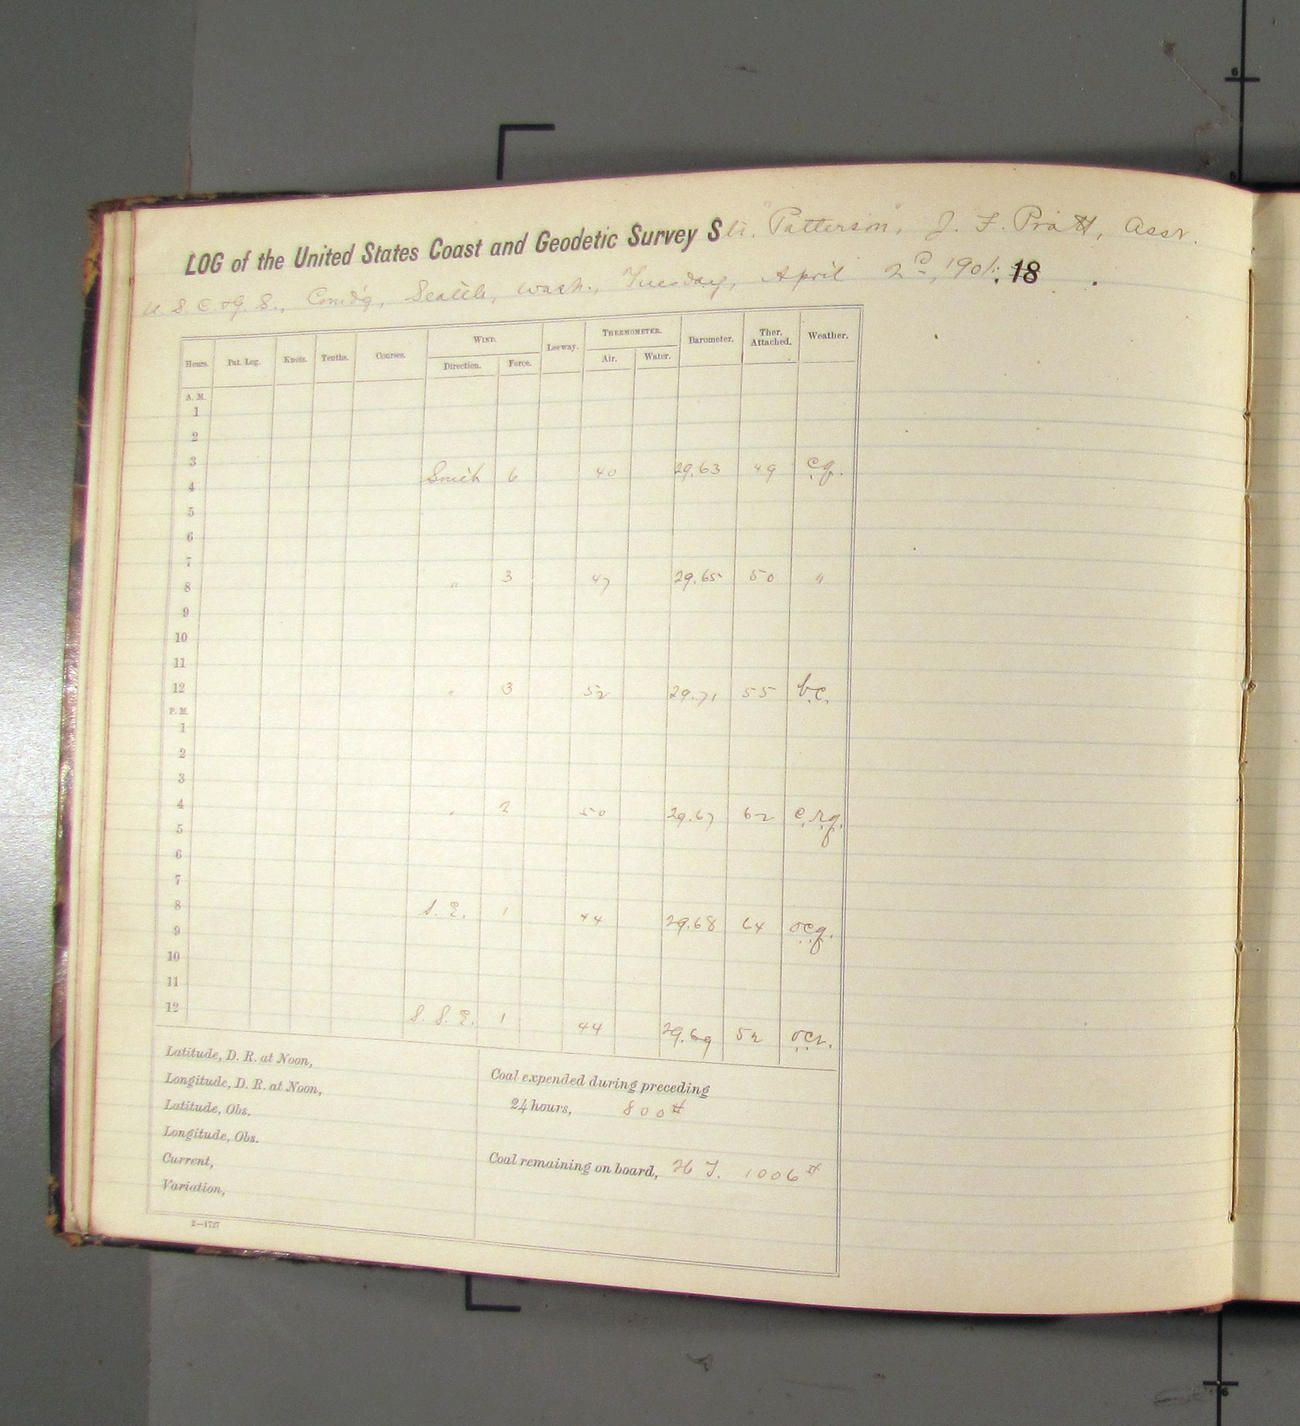 LOG of the United States Coast and Geodetic Survey Str. "Patterson", J. F. Pratt, Asst.
U. S. C. & G. S., Comd'g, Seattle, Wash., Tuesday, April 2d, 1901. , 18 .
Hours. Pat. Log. Knots. Tenths. Courses. WIND. Leeway. THERMOMETER. Barometer. Ther. Attached. Weather.
Direction. Force. Air. Water.
A. M.
1
2
3
4 South 6 40 29.63 49 c.q.
5
6
7
8 " 3 47 29.65 50 "
9
10
11
12 " 3 52 29.71 55 b.c.
P. M.
1
2
3
4 " 2 50 29.67 62 c.r.q.
5
6
7
8 S. E. 1 44 29.68 64 o.c.q.
9
10
11
12 S. S. E. 1 44 29.69 52 o.c.r.
Latitude, D. R. at Noon,
Longitude, D. R. at Noon,
Latitude, Obs.
Longitude, Obs.
Current,
Variation,
Coal expended during preceding
24 hours, 800#
Coal remaining on board, 26 T. 1006#
2—1727